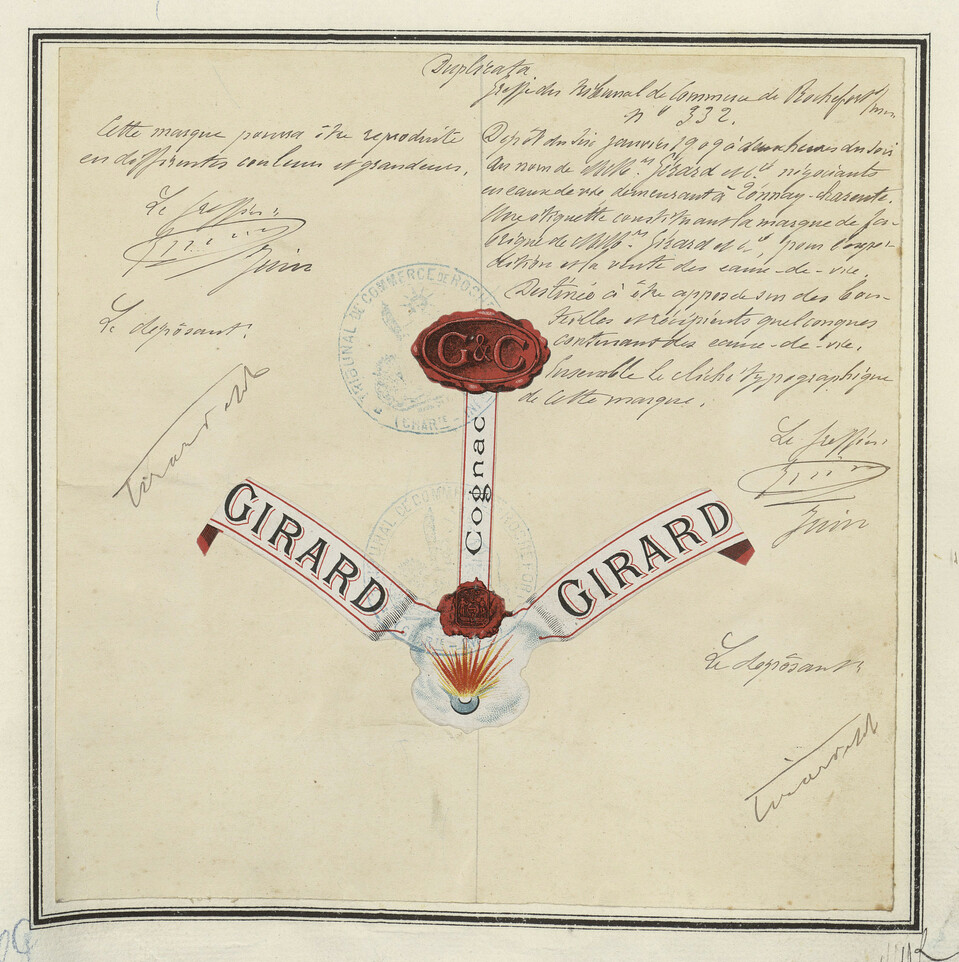 Duplicata
Greffe du Tribunal de Commerce de Rochefort s/mer
n° 332.
Cette marque pourra être reproduite
en différentes couleurs et grandeurs.
Le Greffier:
Juin
Le déposant:
Girard et Cie
Dépôt du six janvier 1909 à deux heures du soir
au nom de MM.rs Girard et Cie négociants
en eaux de vie demeurant à Tonnay-Charente.
Une étiquette constituant la marque de fa-
brique de MM.rs Girard et Cie, pour l'expé-
dition et la vente des eaux-de-vie.
Destinée à être apposée sur des bou-
teilles et récipients quelconques
contenant des eaux-de-vie.
Ensemble le cliché typographique
de cette marque.
Le Greffier:
Juin
Le déposant:
Girard et Cie
TRIBUNAL DE COMMERCE DE ROCHE
(CHAR.TE
G&C
Cognac
GIRARD
GIRARD